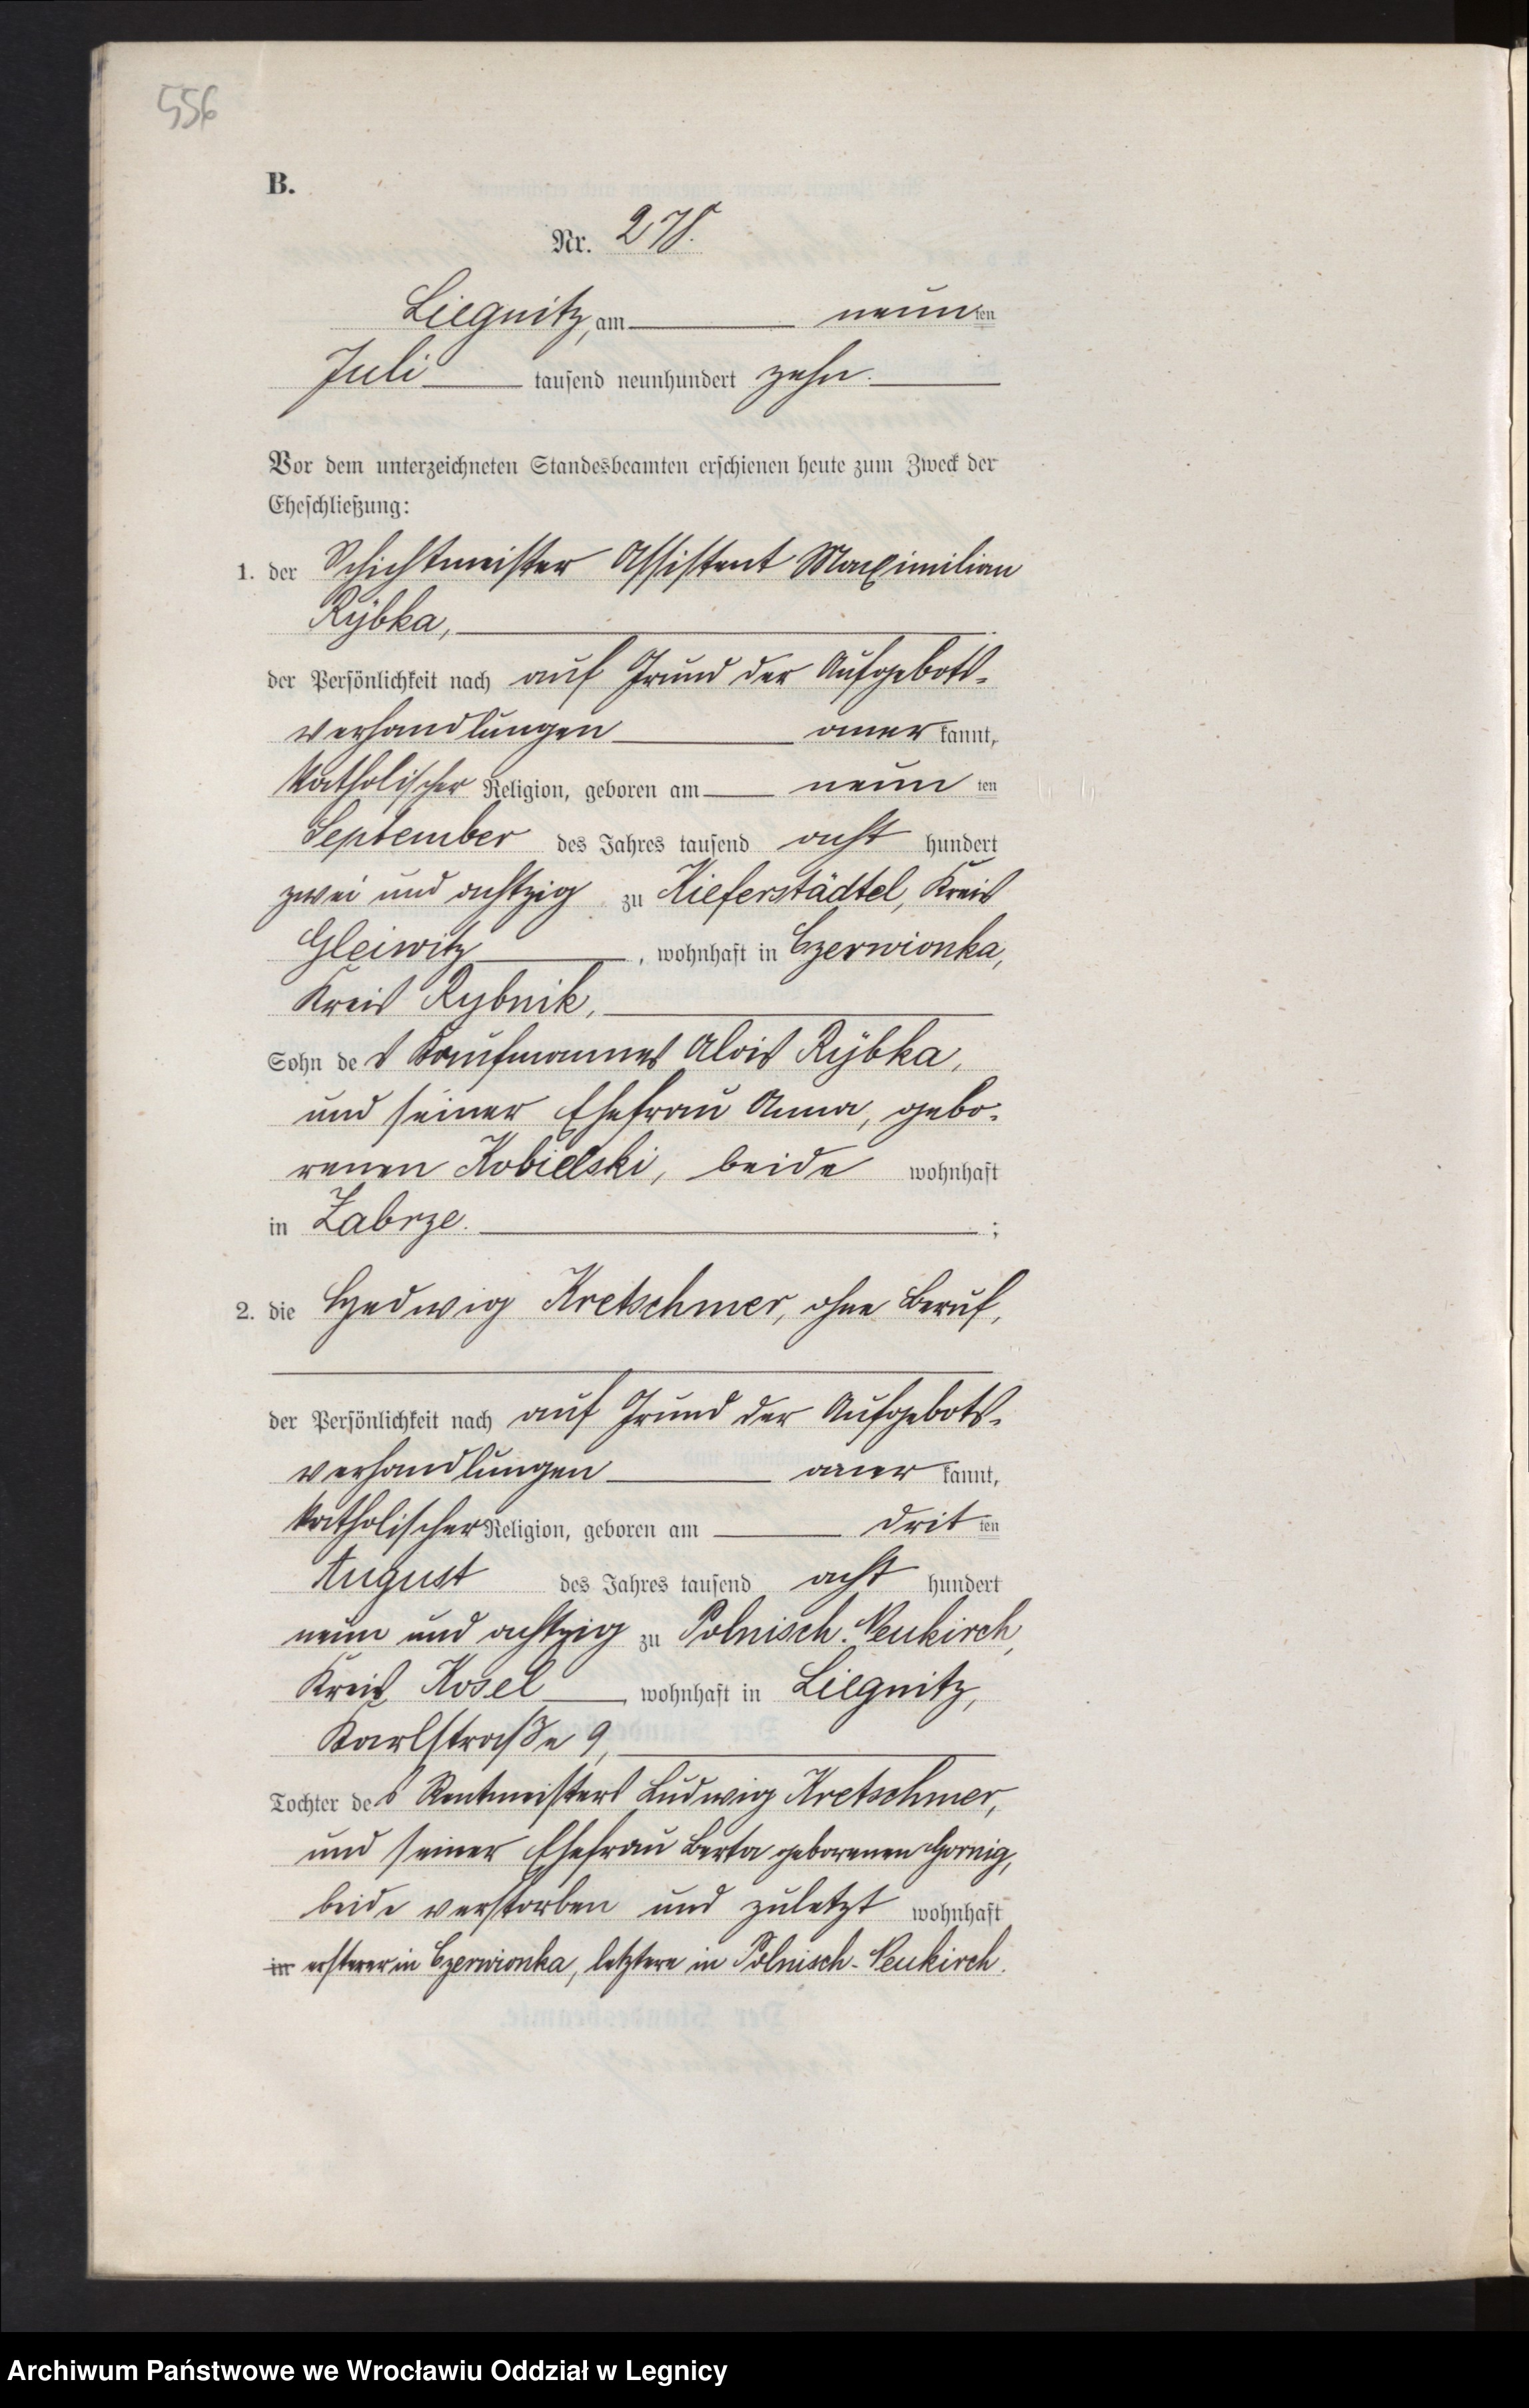 556
B.
Nr. 278.
Liegnitz, am neunten
Juli tausend neunhundert zehn.
Vor dem unterzeichneten Standesbeamten erschienen heute zum Zweck der
Eheschließung:
1. der Schichtmeister Assistent Maximilian
Rÿbka,
der Persönlichkeit nach auf Grund der Aufgebots-
verhandlungen anerkannt,
katholischer Religion, geboren am neunten
September des Jahres tausend acht hundert
zwei und achtzig zu Kieferstädtel, Kreis
Gleiwitz, wohnhaft in Czerwionka,
Kreis Rybnik,
Sohn des Kaufmannes Alois Rÿbka,
und seiner Ehefrau Anna, gebo-
renen Kobielski, beide wohnhaft
in Zabrze. ;
2. die Hedwig Kretschmer, ohne Beruf,
der Persönlichkeit nach auf Grund der Aufgebots-
verhandlungen anerkannt,
katholischer Religion, geboren am dritten
August des Jahres tausend acht hundert
neun und achtzig zu Polnisch-Neukirch,
Kreis Kosel, wohnhaft in Liegnitz,
Karlstraße 9,
Tochter des Rentmeisters Ludwig Kretschmer,
und seiner Ehefrau Berta geborenen Gornig,
beide verstorben und zuletzt wohnhaft
in ersterer in Czerwionka, letztere in Polnisch-Neukirch.
Archiwum Państwowe we Wrocławiu Oddział w Legnicy